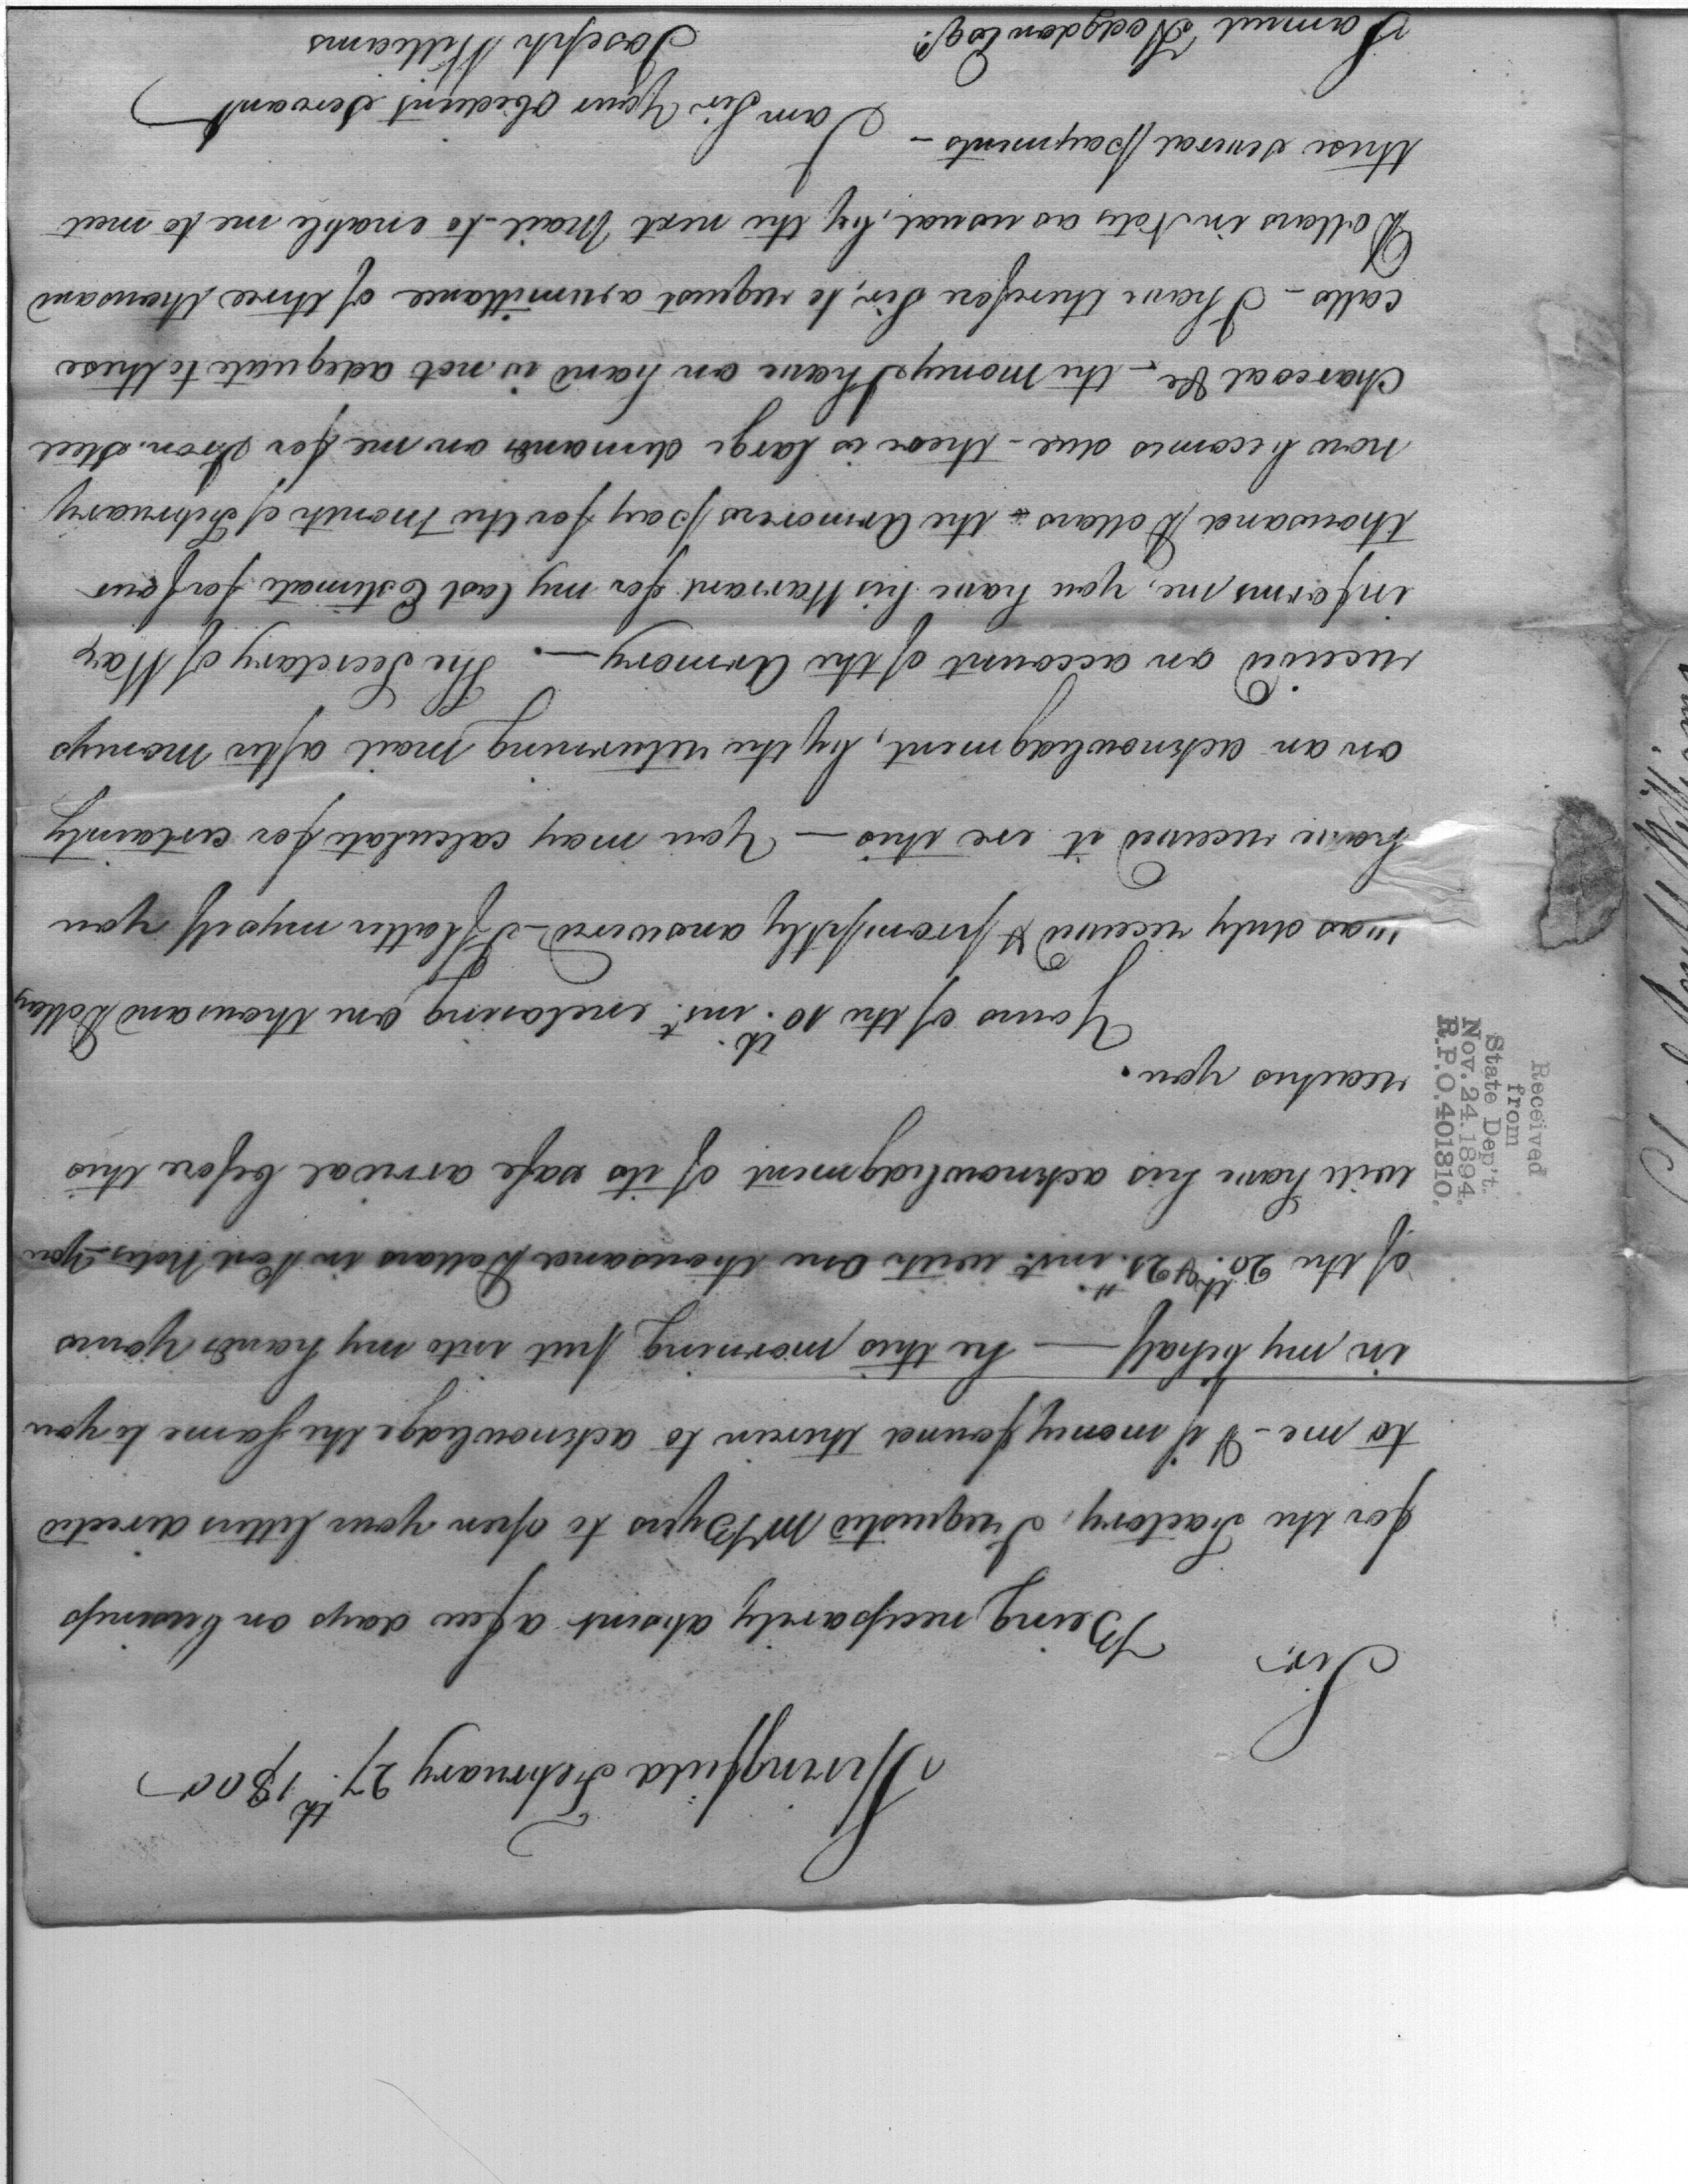 Springfield February 27th. 1800
Sir,
Being necessarily absent a few days on business
for the Factory, I requested Mr Byers to open your letters directed
to me - & if money found therein to acknowledge the same to you
in my behalf — he this morning put into my hands yours
of the 20th. & 21st. inst. with One thousand Dollars in Post Notes - you
will have his acknowledgment of its safe arrival before this
reaches you.
Yours of the 10th. inst. enclosing one thousand Dollars
was duly received & promptly answered - I flatter myself you
have received it ere this — You may calculate for certainty
on an acknowledgment, by the returning mail after moneys
received on account of the Armory —. The Secretary of War
informs me, you have his Warrant for my last Estimate for four
thousand Dollars - the Armorers pay for the Month of February
now becomes due - there is large demands on me for Iron. Steel
Charcoal &c - the moneys I have on hand is not adequate to these
calls - I have therefore Sir, to request a remittance of three thousand
Dollars in Notes as usual, by the next Mail - to enable me to meet
these several payments -
I am Sir Your Obedient Servant
Joseph Williams
Samuel Hodgdon Esqr.
Received
from
State Dep't.
Nov. 24. 1894.
R.P.O. 401810.
Williams